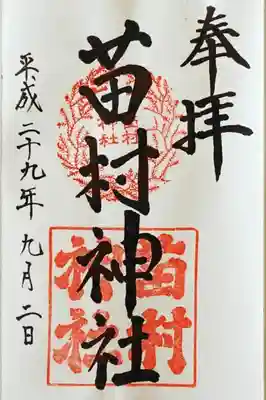 奉拝
苗村神社
平成二十九年九月二日
苗村
神社